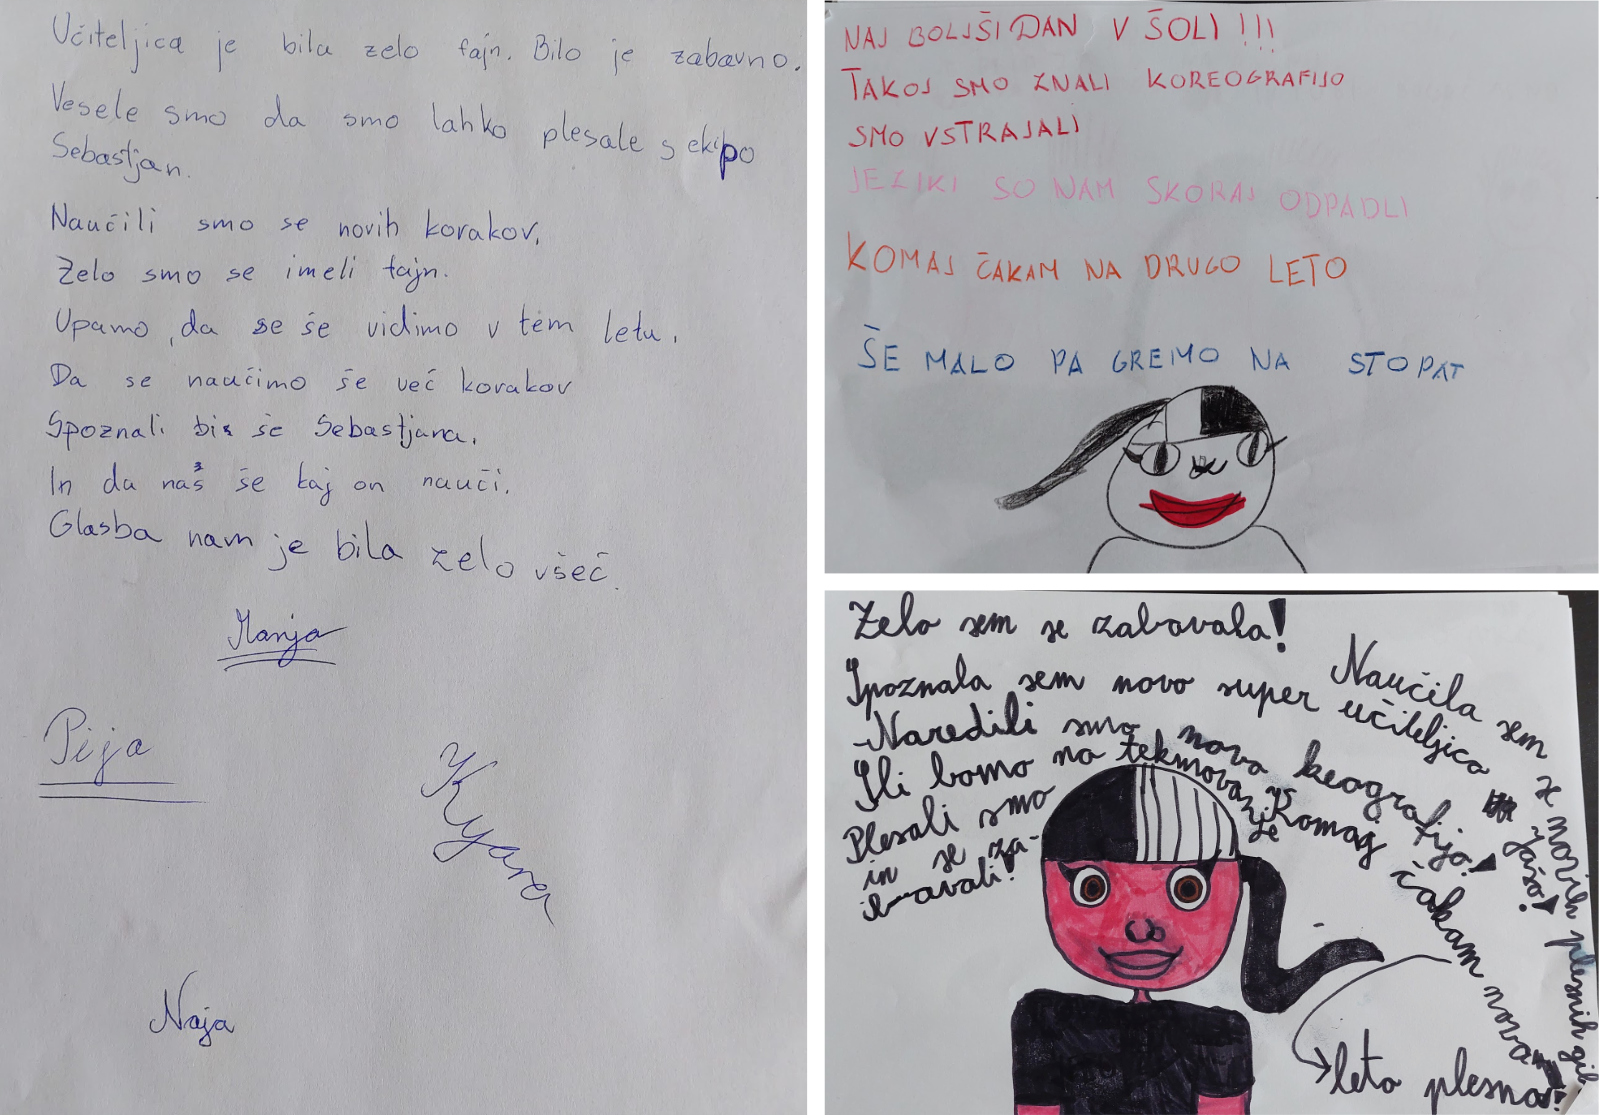 Učiteljica je bila zelo fajn. Bilo je zabavno.
Vesele smo da smo lahko plesale s ekipo
Sebastjan.
Naučili smo se novih korakov.
Zelo smo se imeli fajn.
Upamo, da se še vidimo v tem letu.
Da se naučimo še več korakov
Spoznali bi še Sebastjana.
In da nas še kaj on nauči.
Glasba nam je bila zelo všeč.
Manja
Pija
Kyara
Naja
NAJ BOLJŠI DAN V ŠOLI!!!
TAKOJ SMO ZNALI KOREOGRAFIJO
SMO VSTRAJALI
JEZIKI SO NAM SKORAJ ODPADLI
KOMAJ ČAKAM NA DRUGO LETO
ŠE MALO PA GREMO NA STOPAT
Zelo sem se zabavala!
Spoznala sem novo super učiteljico
Naredili smo novo keografijo!
Šli bomo na tekmovanje
Plesali smo
in se za-
bavali!
Naučila sem se novih plesnih gib
Komaj čakam novo
leto plesno!